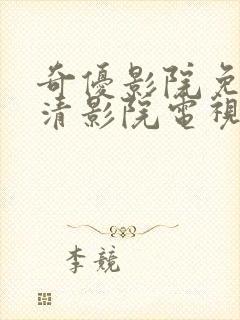 奇優影院免
清影院電視
李競